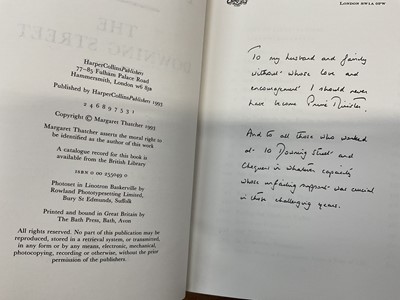 HarperCollinsPublishers
77–85 Fulham Palace Road
Hammersmith, London w6 8JA
Published by HarperCollinsPublishers 1993
2 4 6 8 9 7 5 3 1
Copyright © Margaret Thatcher 1993
Margaret Thatcher asserts the moral right to
be identified as the author of this work
A catalogue record for this book is
available from the British Library
ISBN 0 00 255049 0
Photoset in Linotron Baskerville by
Rowland Phototypesetting Limited,
Bury St Edmunds, Suffolk
Printed and bound in Great Britain by
The Bath Press, Bath, Avon
All rights reserved. No part of this publication may be
reproduced, stored in a retrieval system, or transmitted,
in any form or by any means, electronic, mechanical,
photocopying, recording or otherwise, without the prior
permission of the publishers.
LONDON SW1A 0PW
To my husband and family
without whose love and
encouragement I should never
have become Prime Minister.
And to all those who worked
at 10 Downing Street and
Chequers in whatever capacity
whose unfailing support was crucial
in those challenging years.